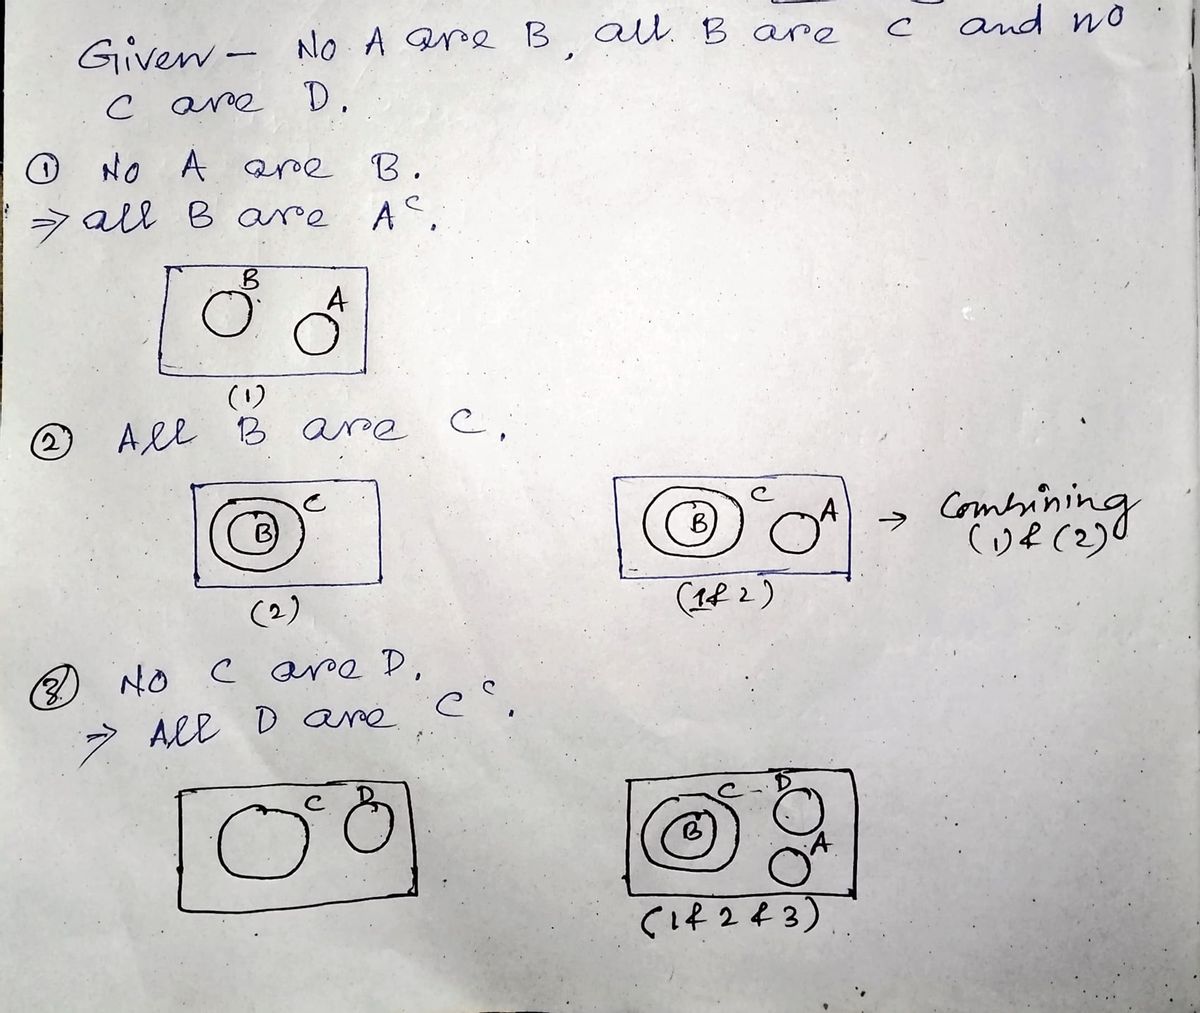 Given - No A are B, all B are C and no
C are D.
① No A are B.
⇒ all B are Aᶜ.
B
A
(1)
② All B are C.
C
B
(2)
C
B
A
→ Combining
(1) & (2)
(1 & 2)
③ No C are D.
⇒ All D are Cᶜ.
C
D
C
D
B
A
(1 & 2 & 3)